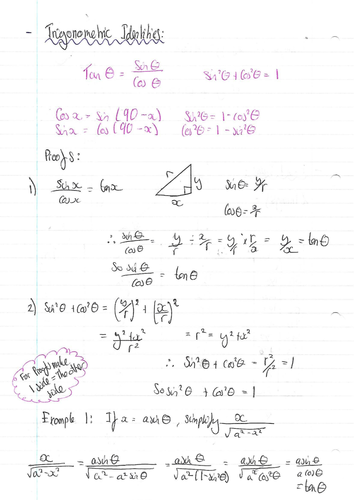 - Trigonometric Identities:
Tan θ = Sin θ / Cos θ    Sin²θ + Cos²θ = 1
Cos x = sin (90 - x)    Sin²θ = 1 - cos²θ
Sin x = cos (90 - x)    Cos²θ = 1 - sin²θ
Proofs:
1) Sin x / Cos x = tan x    r y x    Sin θ = y/r
Cos θ = x/r
∴ Sin θ / Cos θ = y/r ÷ x/r = y/r × r/x = y/x = tan θ
So sin θ / cos θ = tan θ
2) Sin²θ + Cos²θ = (y/r)² + (x/r)²
= y² + x² / r² = r² = y² + x²
∴ Sin²θ + cos²θ = r²/r² = 1
So sin²θ + cos²θ = 1
For Proofs make 1 side = The other side
Example 1: If x = a sin θ, simplify x / √(a² - x²)
x / √(a² - x²) = a sin θ / √(a² - a² sin θ) = a sin θ / √(a² (1 - sin²θ)) = a sin θ / √(a² cos²θ) = a sin θ / a cos θ
= tan θ